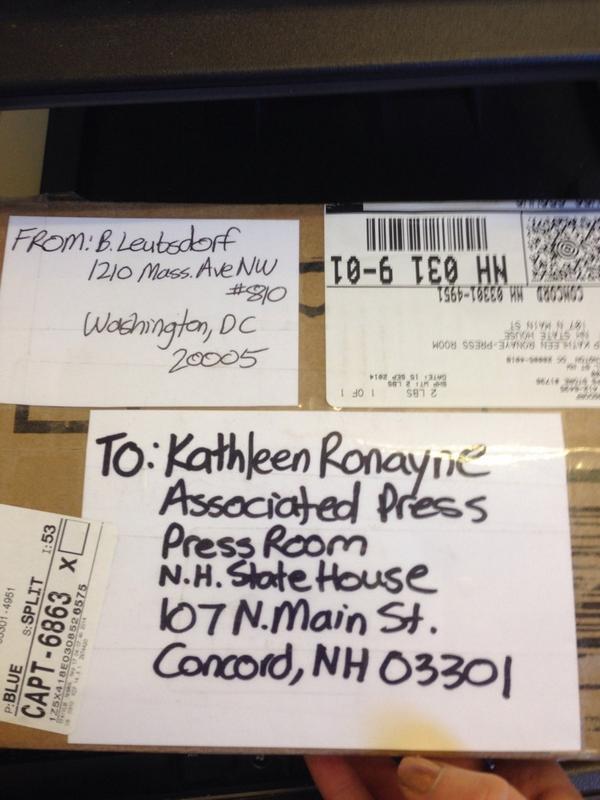 FROM: B. Leubsdorf
1210 Mass. Ave NW
#810
Washington, DC
20005
NH 031 9-01
CONCORD NH 03301-4951
107 N MAIN ST
NH STATE HOUSE
KATHLEEN RONAYE-PRESS ROOM
SHP WT: 2 LBS
DATE: 15 SEP 2014
2 LBS 1 OF 1
TO: Kathleen Ronayne
Associated Press
Press Room
N.H. State House
107 N. Main St.
Concord, NH 03301
P: BLUE S: SPLIT 1:53
CAPT-6863 X